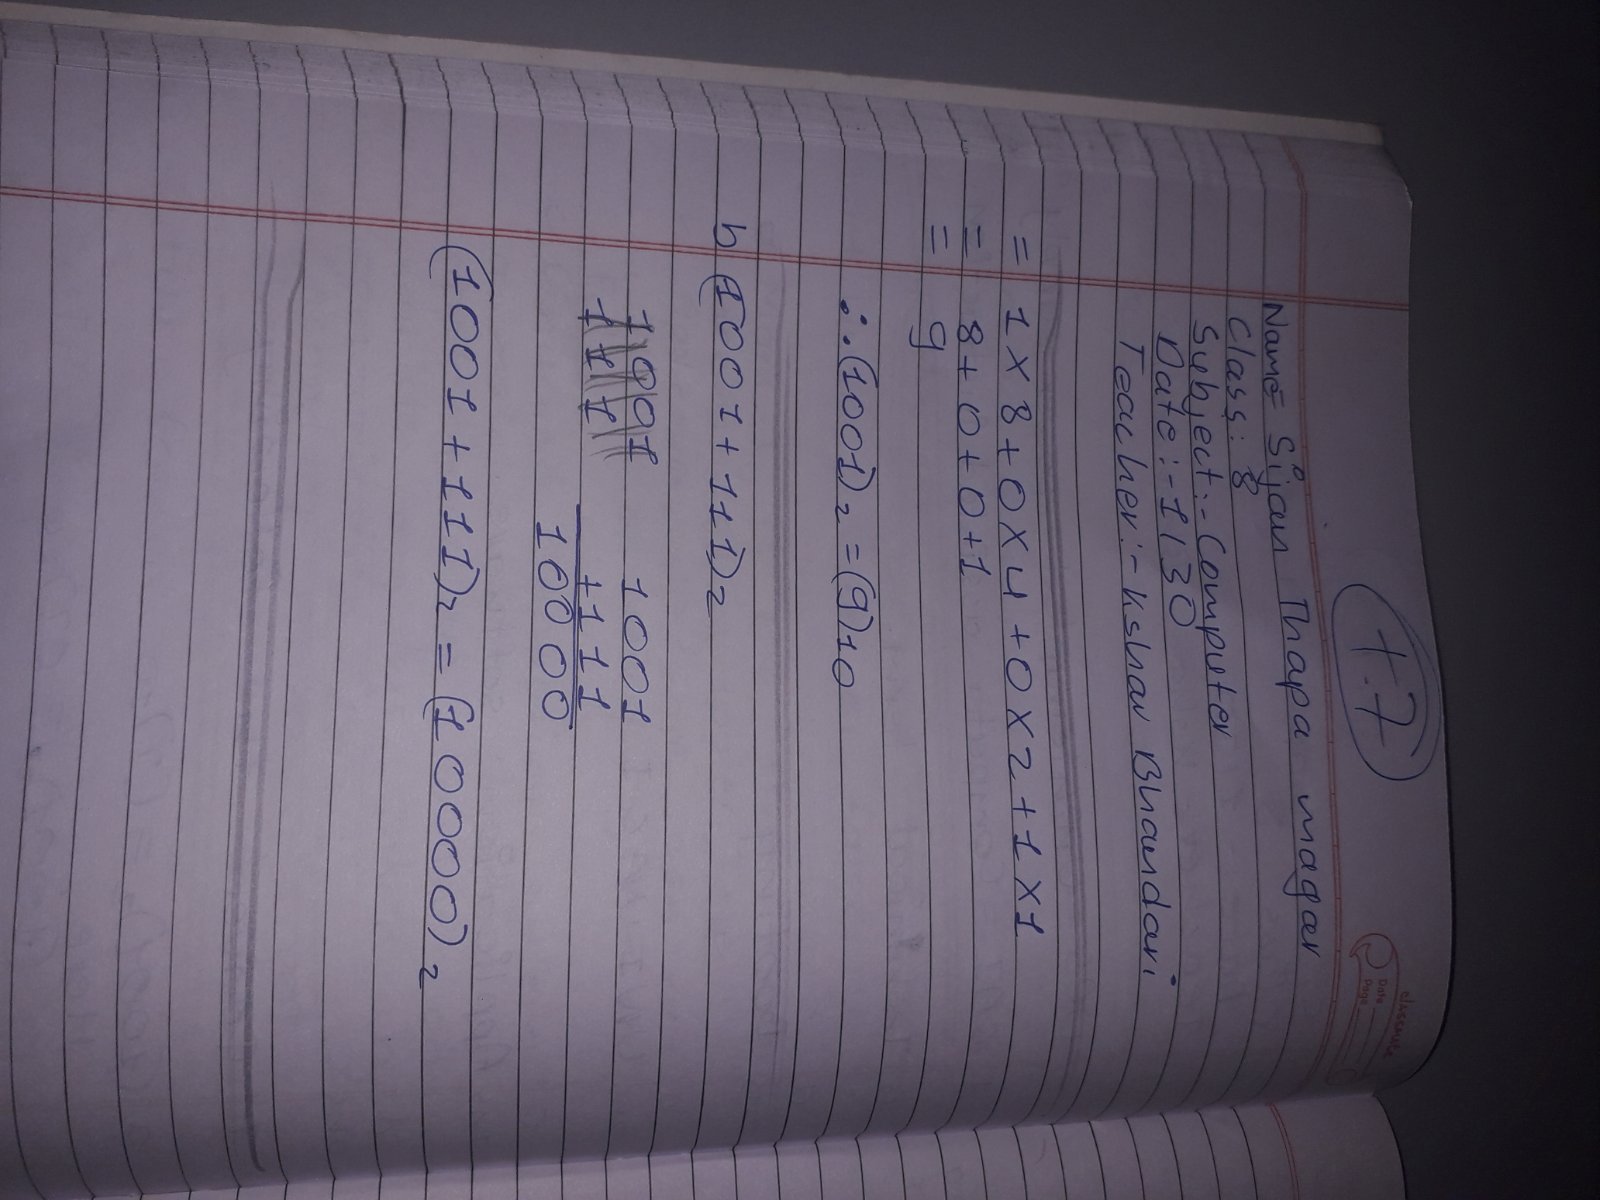 +.7
classmate
Date
Page
Name:- Sijan Thapa magar
Class: 8
Subject:- Computer
Date:- 1130
Teacher:- Kshar Bhandari
= 1 x 8 + 0 x 4 + 0 x 2 + 1 x 1
= 8 + 0 + 0 + 1
= 9
∴ (1001)₂ = (9)10
b (1001 + 111)₂
1001
111
1001
+111
10000
(1001 + 111)₂ = (10000)₂